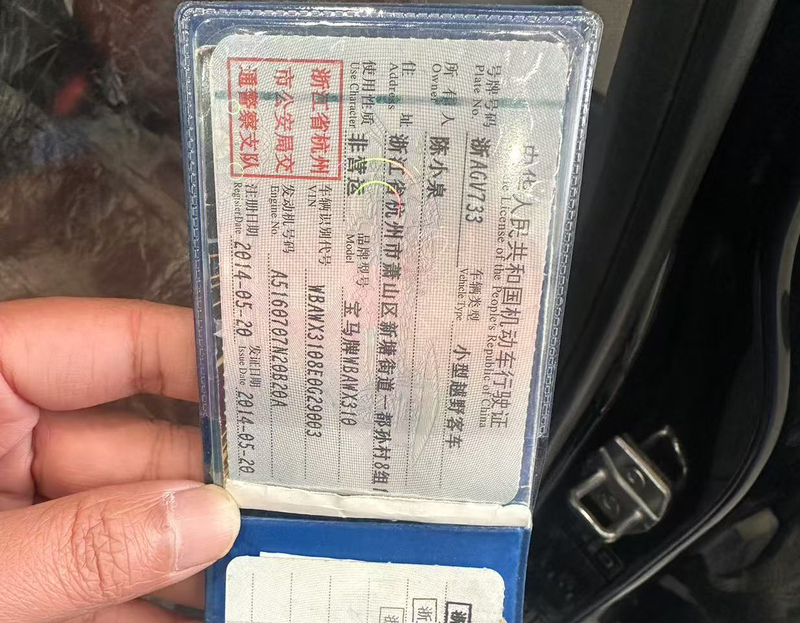 中华人民共和国机动车行驶证
License of the People's Republic of China
号牌号码 浙AGV733 车辆类型 小型越野客车
Plate No. Vehicle Type
所有人 陈小泉
Owner
住 址 浙江省杭州市萧山区新塘街道一都孙村8组
Address
使用性质 非营运 品牌型号 宝马牌WBAWX310
Use Character Model
浙江省杭州
市公安局交
通警察支队
车辆识别代号 WBAWX3108E0G29003
VIN
发动机号码 A5160707N20B20A
Engine No.
注册日期 2014-05-20 发证日期 2014-05-20
Register Date Issue Date
浙
浙